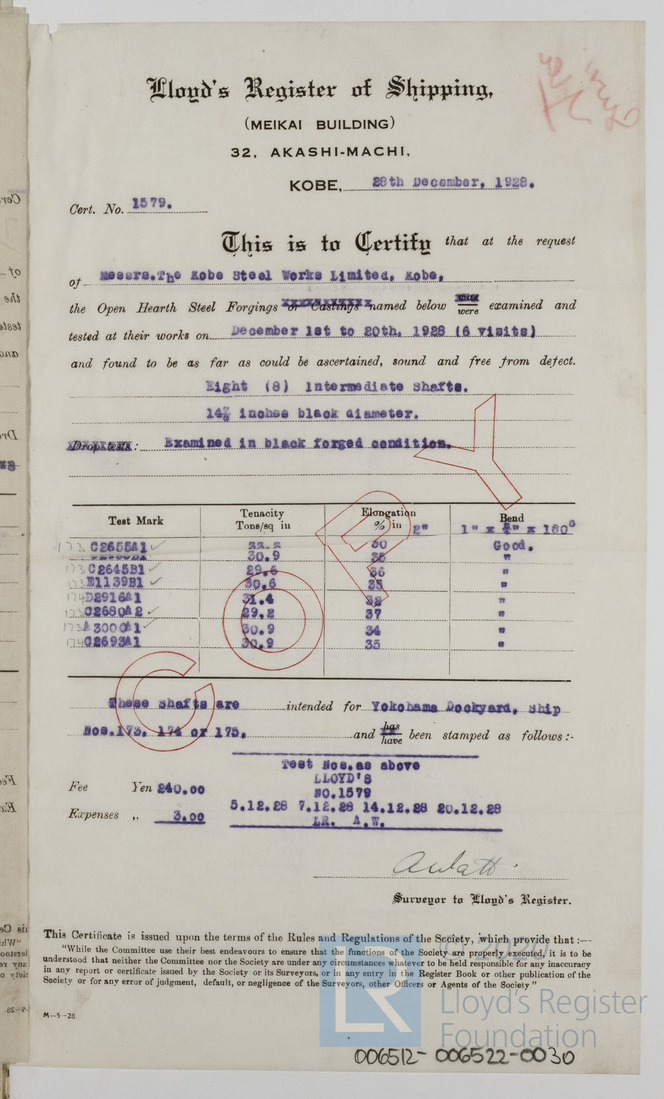 Lloyd's Register of Shipping,
(MEIKAI BUILDING)
32, AKASHI-MACHI,
KOBE, 28th December, 1928.
Cert. No. 1579.
This is to Certify that at the request
of Messrs. The Kobe Steel Works Limited, Kobe,
the Open Hearth Steel Forgings or Castings named below were examined and
tested at their works on December 1st to 20th, 1928 (6 visits)
and found to be as far as could be ascertained, sound and free from defect.
Eight (8) Intermediate Shafts.
14⅞ inches black diameter.
Drop tests: Examined in black forged condition.
Test Mark Tenacity Tons/sq in Elongation % in 2" Bend 1" x ¾" x 180°
C2655A1 30 Good.
30.9 35 "
C2645B1 29.6 36 "
E1139B1 30.6 33 "
D2916A1 31.4 32 "
C2680A2 29.2 37 "
A3000A1 30.9 34 "
C2693A1 30.9 35 "
COPY
These shafts are intended for Yokohama Dockyard, Ship
Nos.173, 174 or 175. and has have been stamped as follows:-
Test Nos. as above
LLOYD'S
Fee Yen 240.00 NO.1579
5.12.28 7.12.28 14.12.28 20.12.28
Expenses „ 3.00 LR. A.W.
A Watt.
Surveyor to Lloyd's Register.
This Certificate is issued upon the terms of the Rules and Regulations of the Society, which provide that :—
"While the Committee use their best endeavours to ensure that the functions of the Society are properly executed, it is to be
understood that neither the Committee nor the Society are under any circumstances whatever to be held responsible for any inaccuracy
in any report or certificate issued by the Society or its Surveyors, or in any entry in the Register Book or other publication of the
Society or for any error of judgment, default, or negligence of the Surveyors, other Officers or Agents of the Society"
M—5-28.
LR Lloyd's Register
Foundation
006512- 006522-0030